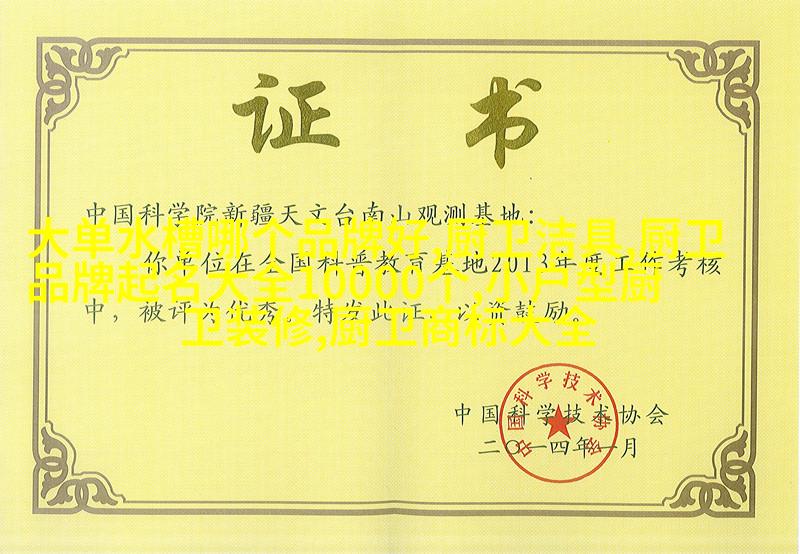 证书
中国科学院新疆天文台南山观测基地：
大单水槽哪个品牌好,厨卫洁具,厨卫
你单位在全国科普教育基地2013年度工作考核
品牌起名大全10000个,小户型厨
中，被评为优秀。特发此证，以资鼓励。
卫装修,厨卫商标大全
中国科学技术协会
二〇一四年一月
中国科学技术协会